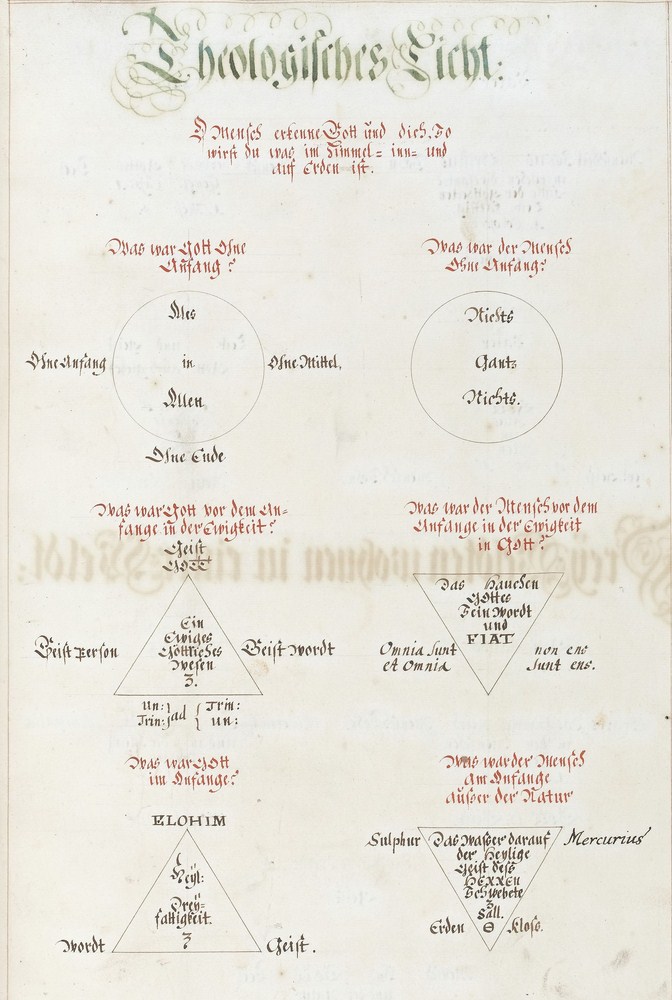 Theologisches Licht:
O Mensch erkenne Gott und dich. So
wirst du was im Himmel= inn= und
auf Erden ist.
Was war Gott Ohne
Anfang?
Alles
in
Allen
Ohne Anfang
Ohne Mittel,
Ohne Ende
Was war der Mensch
Ohne Anfang?
Nichts
Gantz
Nichts.
Was war Gott vor dem An=
fange in der Ewigkeit?
Geist
GOTT
Geist Person
Ein
Ewiges
Göttliches
Wesen
3.
Geist Wordt
Un: } ad { Trin:
Trin: } ad { Un:
Was war der Mensch vor dem
Anfange in der Ewigkeit
in Gott?
Das Hauchen
GOttes
Sein Wordt
und
FIAT
Omnia sunt
et Omnia
non ens
sunt ens.
Was war GOtt
im Anfange?
ELOHIM
Heyl:
Drey=
faltigkeit.
3
Wordt
Geist.
Was war der Mensch
am Anfange
ausser der Natur
Sulphur
Mercurius
Das Wasser darauf
der Heylige
Geist dess
HERREN
Schwebete
3
Sall.
Θ
Erden
Kloss.